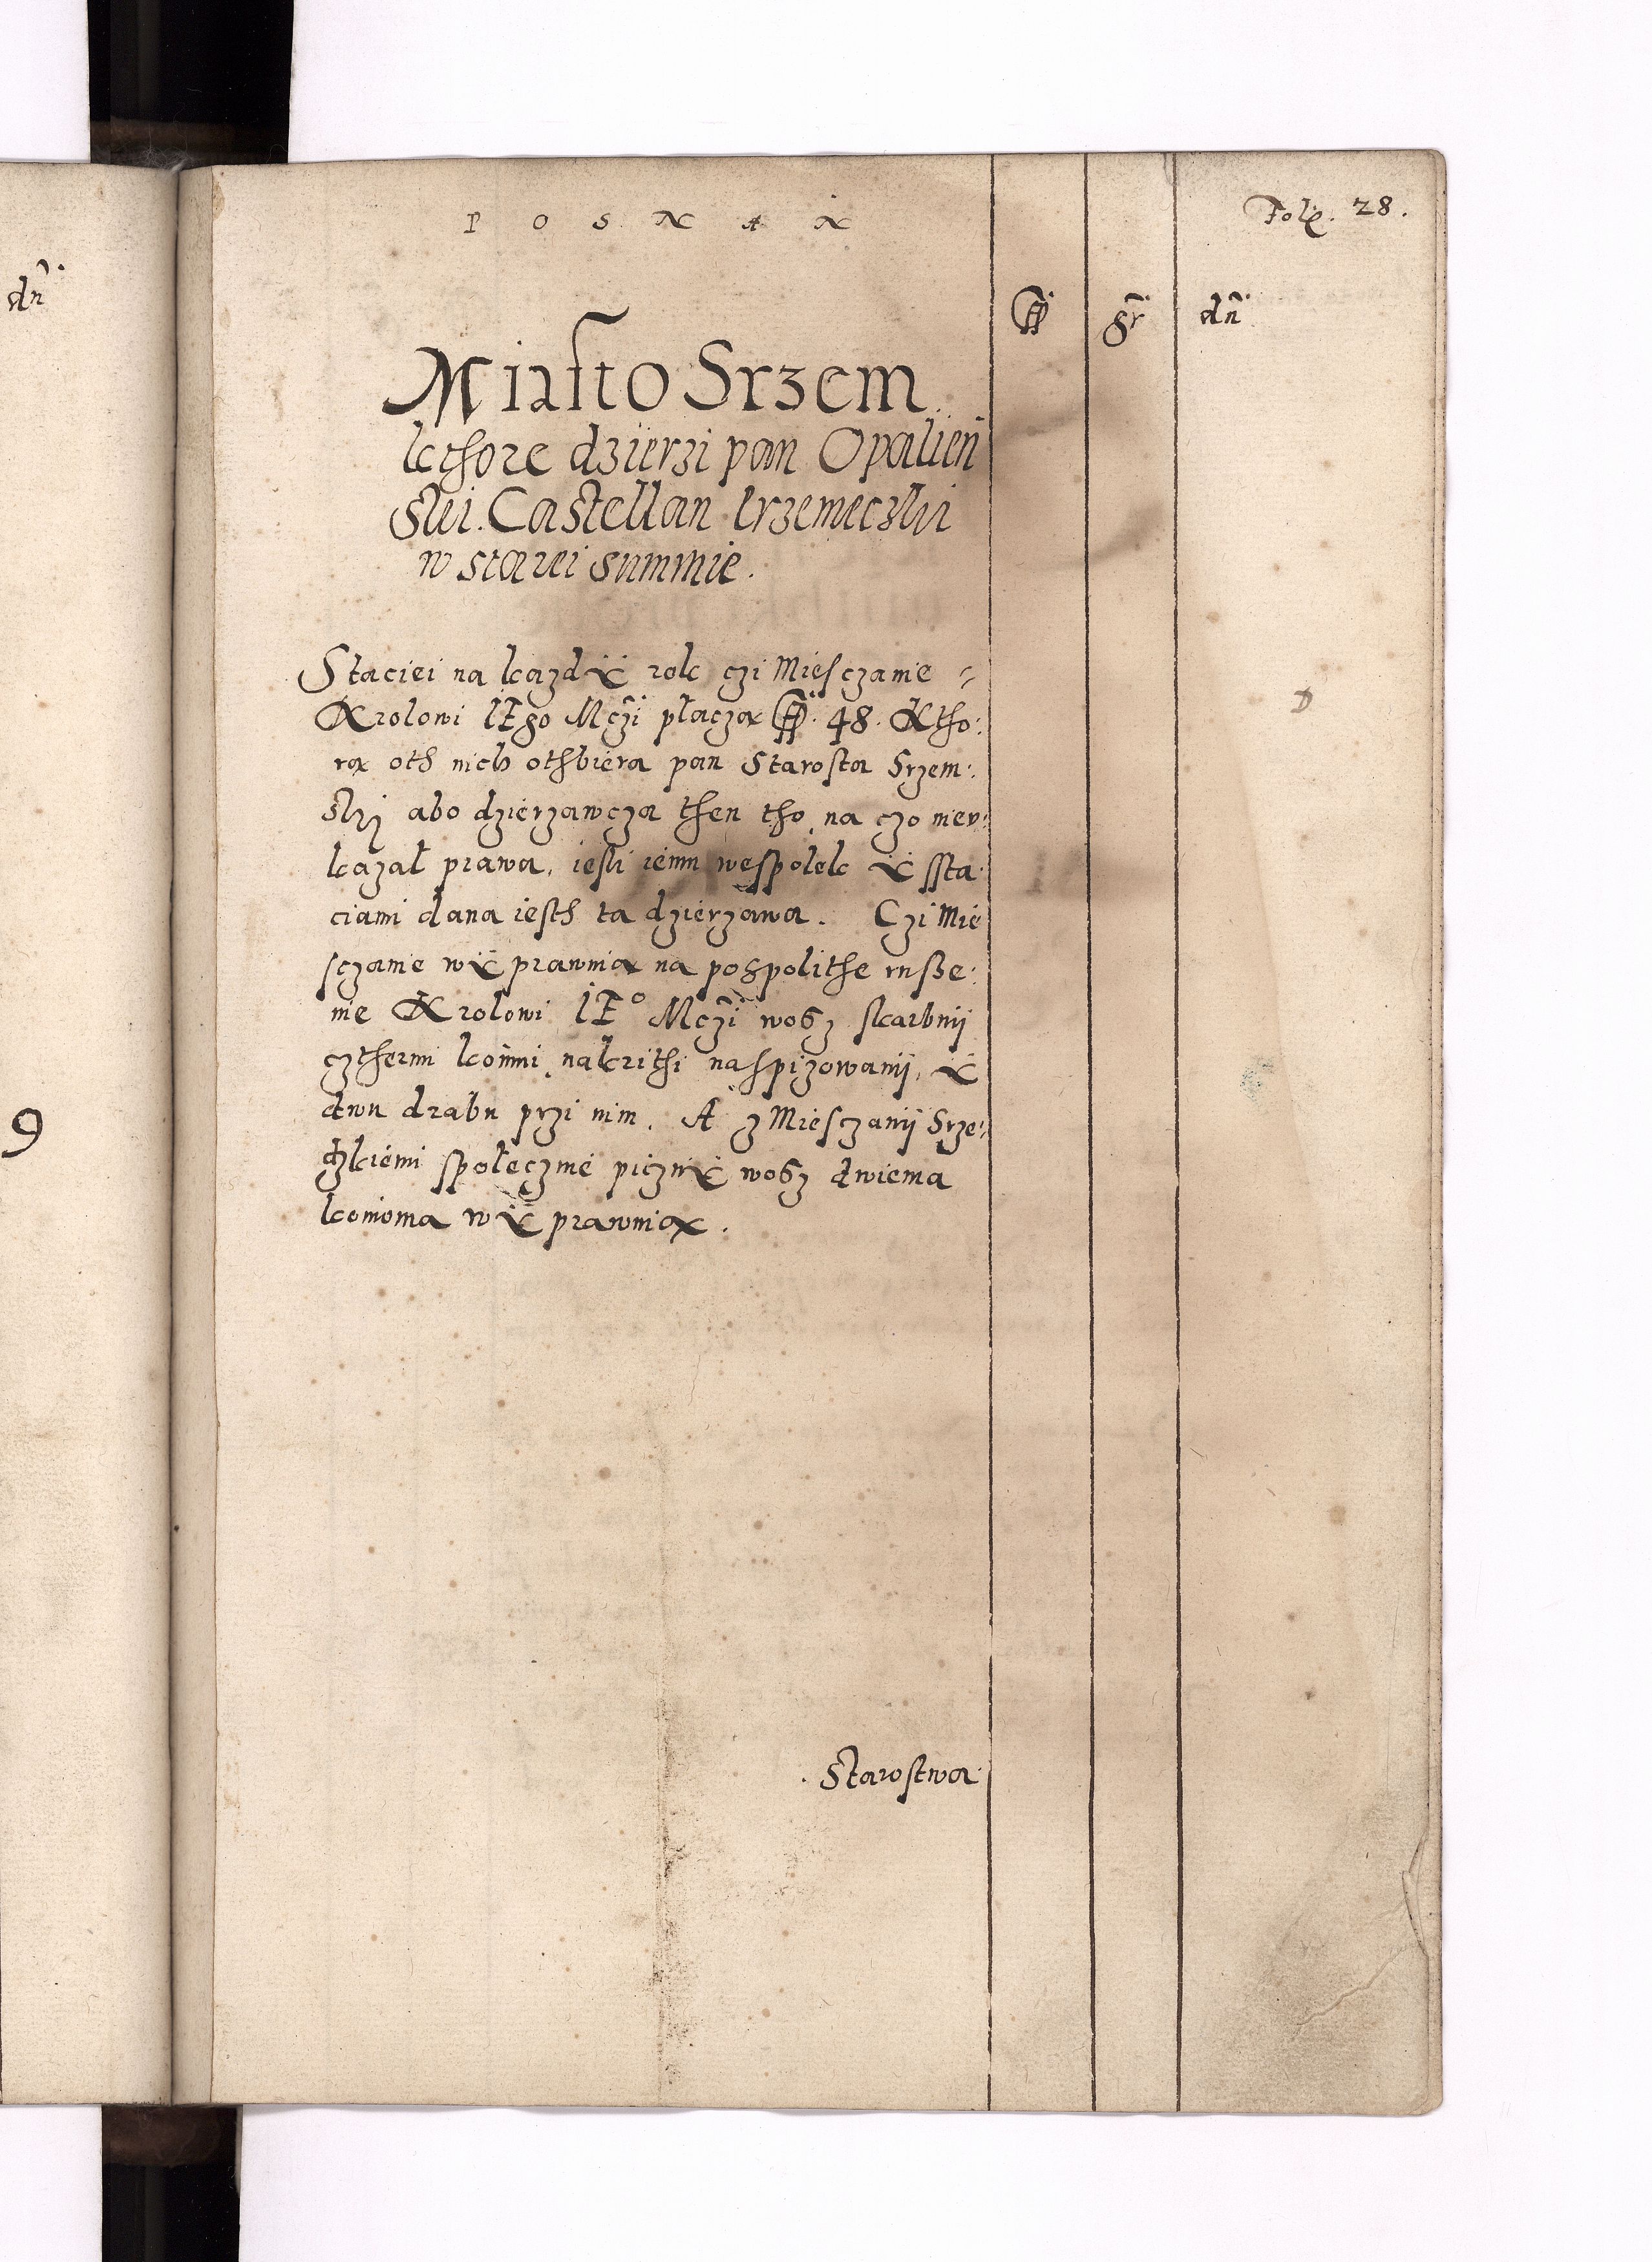 P O S N A N
Foli. 28.
dn̄
fl gr dn̄
Miasto Srzem
kthore dzierzi pan Opalien
ski. Castellan krzemeczki
w starei summie.
Staciei na kazdÿ rok czi Miesczanie
Krolowi IEgo Mczi płaczą fl. 48. Ktho:
rą oth nich othbiera pan Starosta Srzem:
skj abo dzierzawcza then tho, na czo nieu:
kazał prawa, iesli iemu wespołek ÿ ssta
ciami dana iesth ta dzierzawa. Czi Mie
sczanie wÿprawnią na pospolithe rusze:
nie Krolowi IE° Mczi woz skarbnij
czthermi konmi, nakrithi naspizowanij, ÿ
dwu drabu przi nim. A z Miesczanij Srze:
dzkiemi społecznie picznÿ woz dwiema
konioma wÿprawnią.
9
D
Starostwa